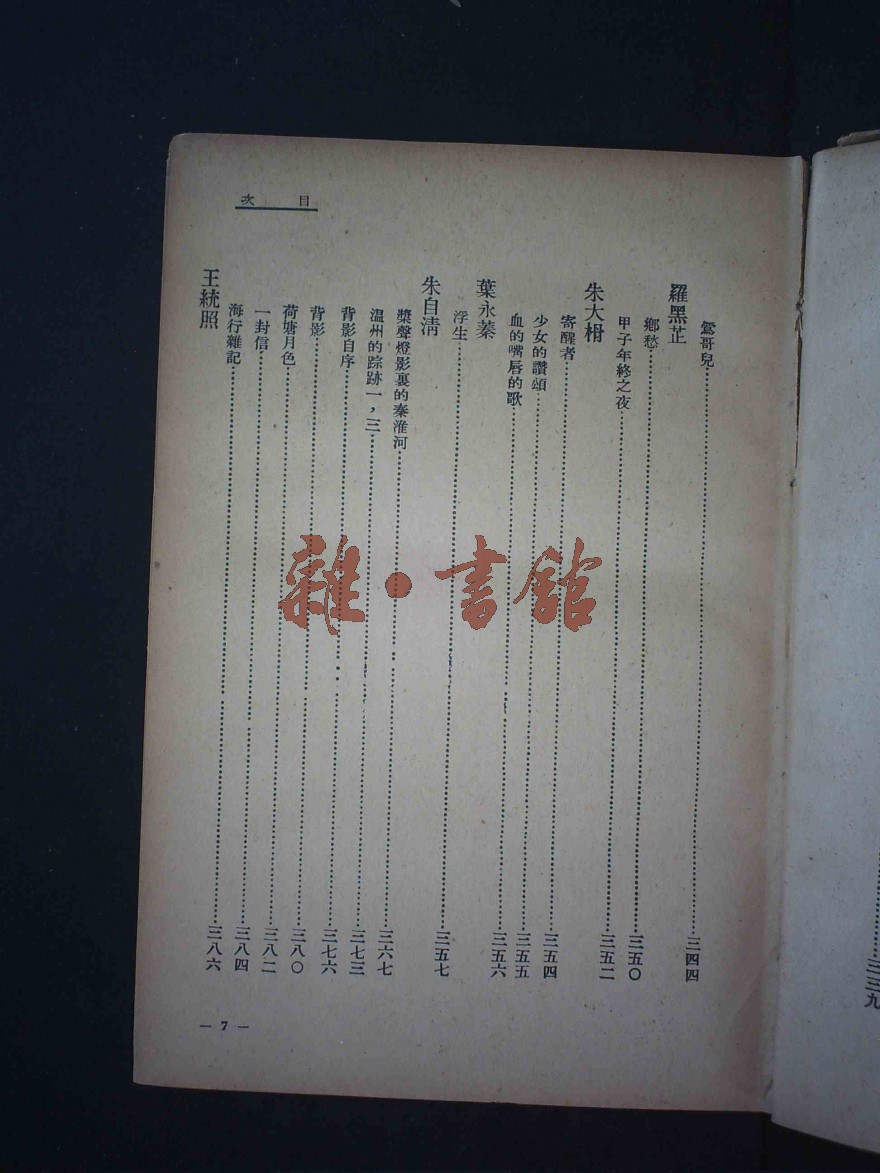 目次
鴛哥兒……三四四
羅黑芷
鄉愁……三五〇
甲子年終之夜……三五二
朱大枬
寄醒者……三五四
少女的讚頌……三五五
血的嘴唇的歌……三五六
葉永蓁
浮生……三五七
朱自清
槳聲燈影裏的秦淮河……三六七
温州的踪跡一,三……三七三
背影自序……三七六
背影……三八〇
荷塘月色……三八二
一封信……三八四
海行雜記……三八六
王統照
— 7 —
三三九
雜·書館